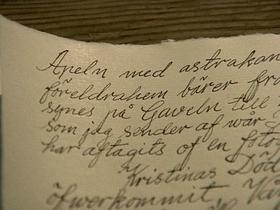 Apeln med astrakan
föreldrahem bärer fra
synes på Gaveln till
som jag sender af wår
har aftagits of en foto
Kristinas Död
öfwerkommit. Vår